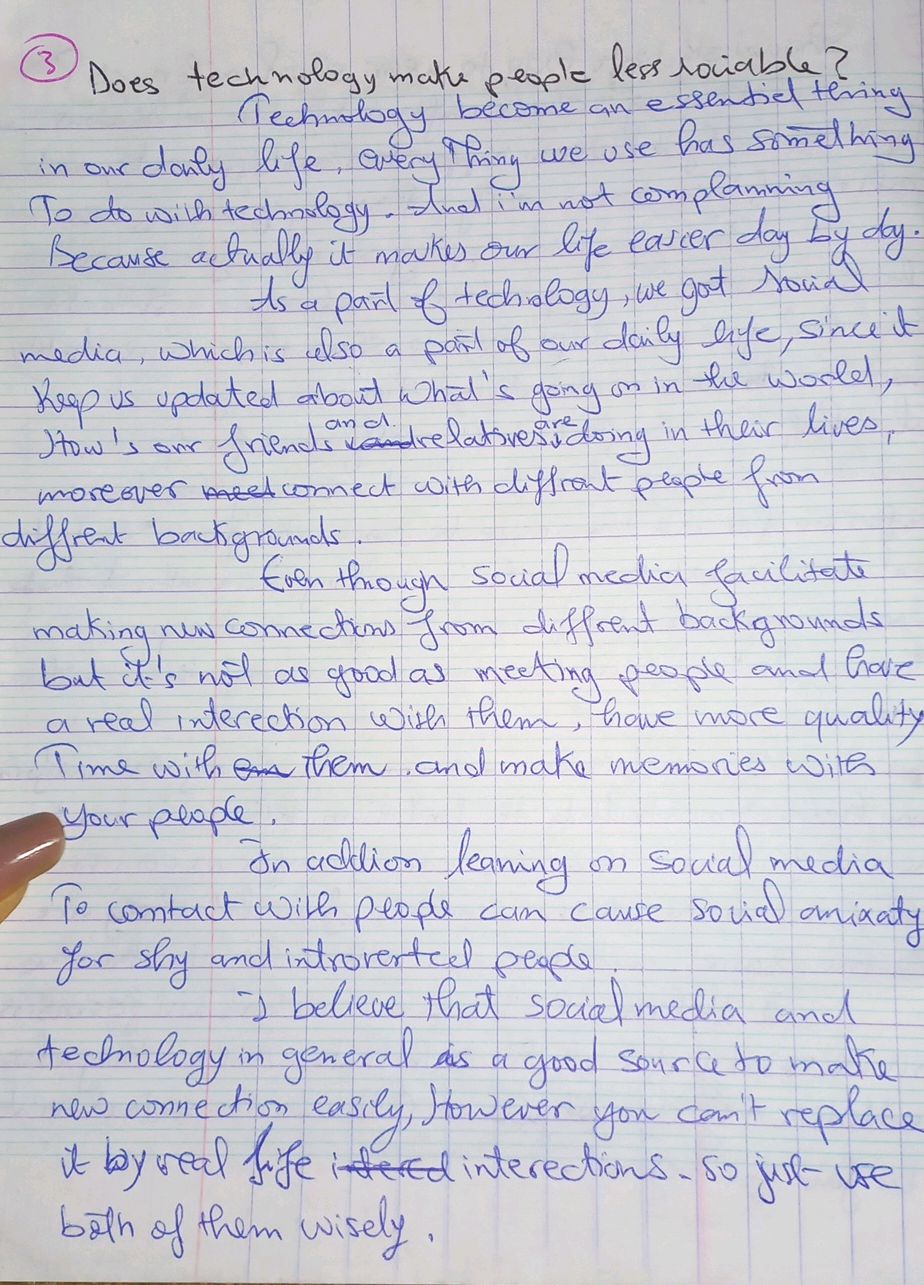 3
Does technology make people less sociable?
Technology become an essentiel thing
in our daily life, every thing we use has something
To do with technology. And i'm not complanning
Because actually it makes our life easier day by day.
As a part of technology, we got social
media, which is also a part of our daily life, since it
Keep us updated about what's going on in the world,
How's our friends and relatives are doing in their lives,
moreover connect with diffrent people from
diffrent backgrounds.
Even though social media facilitate
making new connections from diffrent backgrounds
but it's not as good as meeting people and have
a real interection with them, have more quality
Time with them. and make memories with
your people.
In addion leaning on social media
To contact with people can cause social anixaty
for shy and introverted people.
I believe that social media and
technology in general is a good source to make
new connection easily, However you can't replace
it by real life interections. so just use
both of them wisely.